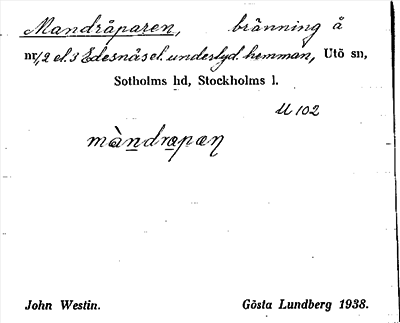 Mandråparen, bränning å
nr 1, 2 el. 3 Edesnäs el. underlyd. hemman, Utö sn,
Sotholms hd, Stockholms l.
U 102
màndrapæɳ
John Westin. Gösta Lundberg 1938.